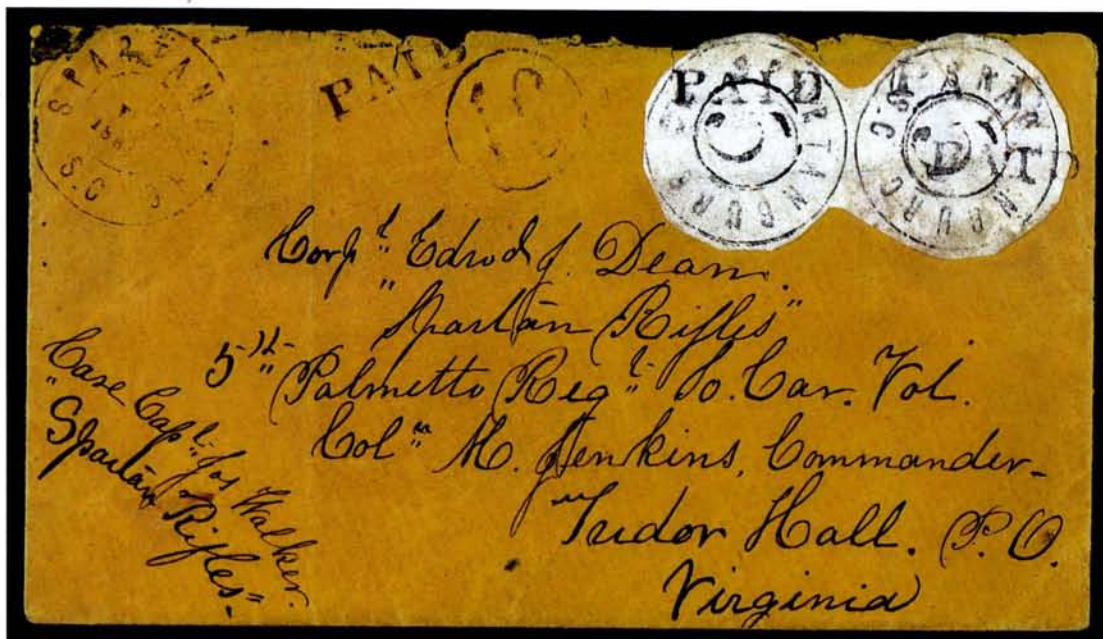 SPARTANBURG S.C.
PAID
10
PAID SPARTANBURG S.C. 5
PAID SPARTANBURG S.C. 5
Corpl. Edwd J. Dean.
"Spartan Rifles"
5th Palmetto Regt. So. Car. Vol.
Coln M. Jenkins, Commander-
Tudor Hall. P.O.
Virginia
Care Capt. Jos Walker.
"Spartan Rifles"